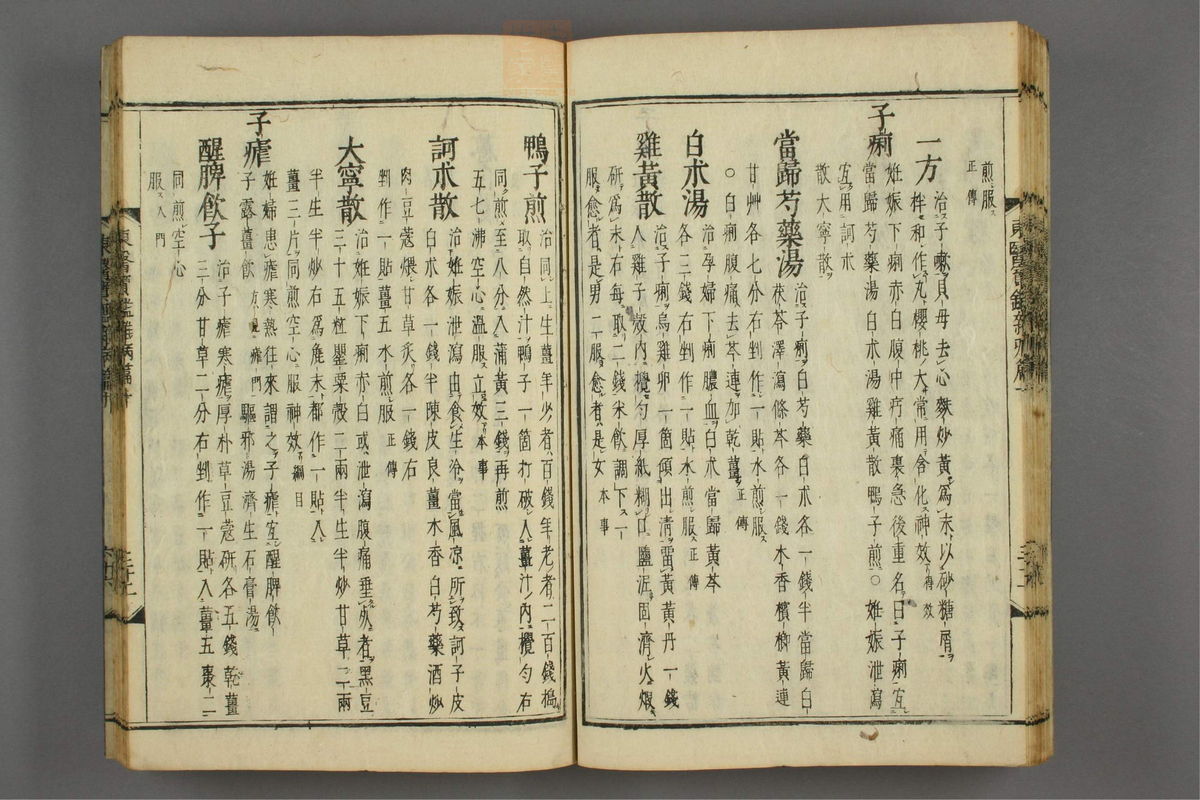 煎服
正傳
一方
治子嗽貝母去心麩炒黃爲末以砂糖屑
拌和作丸櫻桃大常用含化神效 得效
子痢
妊娠下痢赤白腹中㽲痛裏急後重名曰子痢宜
當歸芍藥湯白朮湯雞黃散鴨子煎○妊娠泄瀉
宜用訶朮
散大寧散
當歸芍藥湯
治子痢白芍藥白朮各一錢半當歸白
茯苓澤瀉條芩各一錢木香檳榔黃連
甘艸各七分右剉作一貼水煎服
○白痢腹痛去芩連加乾薑 正傳
白朮湯
治孕婦下痢膿血白朮當歸黃芩
各三錢右剉作一貼水煎服 正傳
雞黃散
治子痢烏雞卵一箇傾出淸畱黃黃丹一錢
入雞子殼內攪勻厚紙糊口鹽泥固濟火煅
硏爲末右每取二錢米飮調下一
服愈者是男二服愈者是女 本事
鴨子煎
治同上生薑年少者百錢年老者二百錢搗
取自然汁鴨子一箇打破入薑汁內攪勻右
同煎至八分入蒲黃三錢再煎
五七沸空心溫服立效 本事
訶朮散
治妊娠泄瀉由食生冷當風涼所致訶子皮
白朮各一錢半陳皮良薑木香白芍藥酒炒
肉豆蔻煨甘草灸各一錢右
剉作一貼薑五水煎服 正傳
大寧散
治妊娠下痢赤白或泄瀉腹痛垂死者黑豆
三十五粒罌粟殼二兩半生半炒甘草二兩
半生半炒右爲麁末都作一貼入
薑三片同煎空心服神效 綱目
子瘧
妊婦患瘧寒熱往來謂之子瘧宜醒脾飮
子露薑飮 方見瘧門 驅邪湯濟生石膏湯
醒脾飮子
治子瘧寒瘧厚朴草豆蔻硏各五錢乾薑
三分甘草二分右剉作一貼入薑五棗二
同煎空心
服 入門